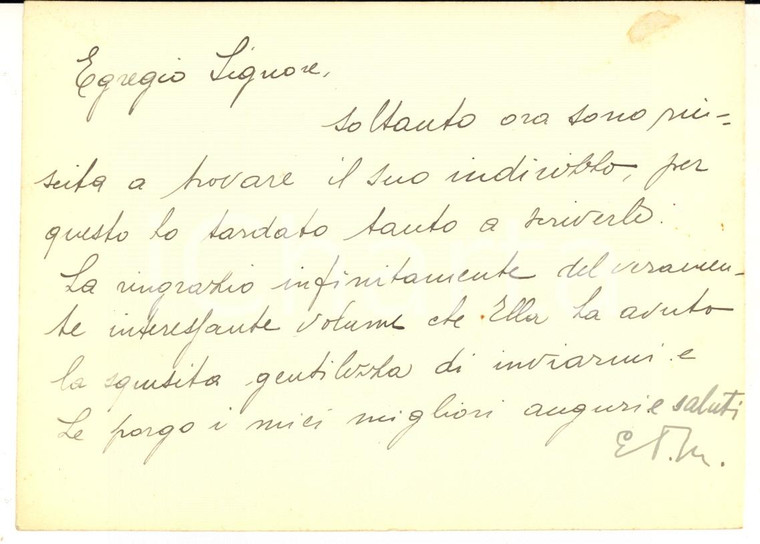 Egregio Signore,
soltanto ora sono riu=
scita a trovare il suo indirizzo, per
questo ho tardato tanto a scriverle.
La ringrazio infinitamente del veramen-
te interessante volume che Ella ha avuto
la squisita gentilezza di inviarmi e
Le porgo i miei migliori auguri e saluti